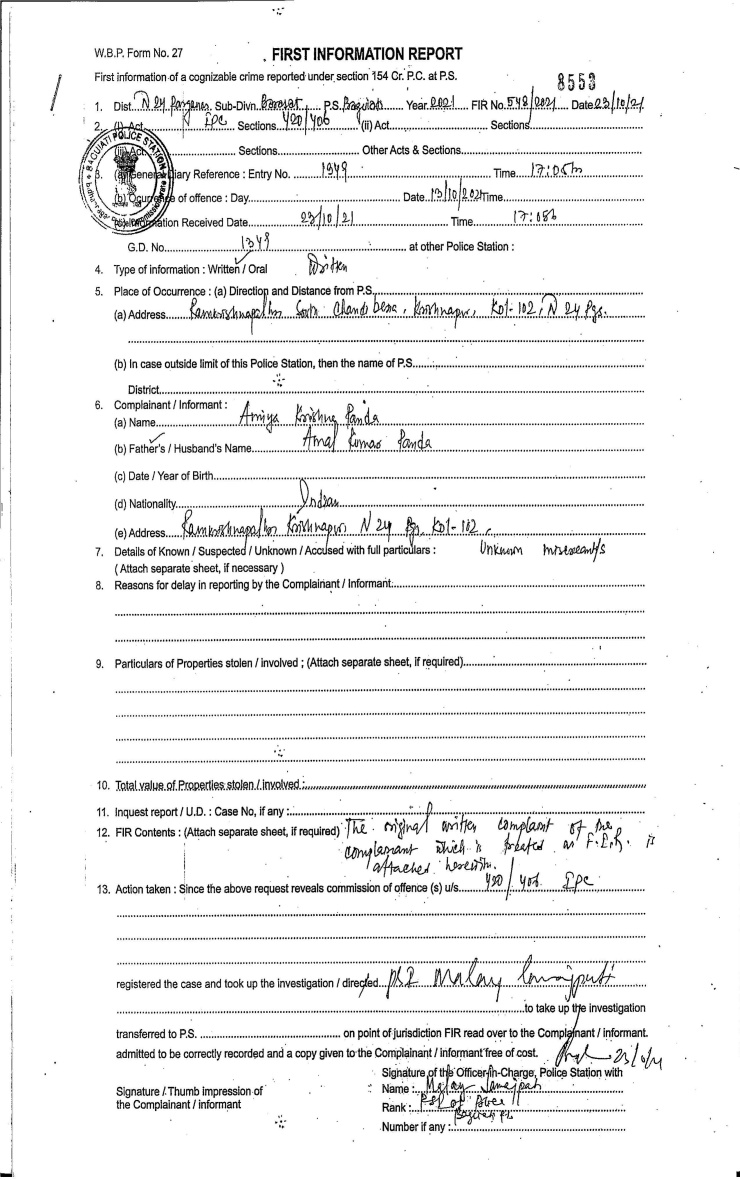 W.B.P. Form No. 27
FIRST INFORMATION REPORT
First information of a cognizable crime reported under section 154 Cr. P.C. at P.S.
8553
1. Dist. N 24 Parganas Sub-Divn. Barasat P.S. Baguiati Year 2021 FIR No. 548/2021 Date 23/10/21
2. (i) Act IPC Sections 420/406 (ii) Act Sections
(iii) Act Sections Other Acts & Sections
BAGUIATI POLICE STATION
3. (a) General Diary Reference : Entry No. 1349 Time 17:05
(b) Occurrence of offence : Day Date 13/10/2021 Time
Information Received Date 23/10/21 Time 17:05
G.D. No. 1349 at other Police Station :
4. Type of information : Written / Oral Written
5. Place of Occurrence : (a) Direction and Distance from P.S.
(a) Address Krishnapur, Kol-102, N 24 Pgs.
(b) In case outside limit of this Police Station, then the name of P.S.
District
6. Complainant / Informant :
(a) Name Amiya Krishna Panda
(b) Father's / Husband's Name Amal Kumar Panda
(c) Date / Year of Birth
(d) Nationality Indian
(e) Address Krishnapur N 24 Pgs Kol-102
7. Details of Known / Suspected / Unknown / Accused with full particulars : Unknown miscreant/s
( Attach separate sheet, if necessary )
8. Reasons for delay in reporting by the Complainant / Informant:
9. Particulars of Properties stolen / involved ; (Attach separate sheet, if required)
10. Total value of Properties stolen / involved :
11. Inquest report / U.D. : Case No, if any :
12. FIR Contents : (Attach separate sheet, if required) The original written complaint of the
complainant which is treated as F.I.R. is
attached herewith.
13. Action taken : Since the above request reveals commission of offence (s) u/s. 420/406 IPC
registered the case and took up the investigation / directed PSI Malay
to take up the investigation
transferred to P.S. on point of jurisdiction FIR read over to the Complainant / informant.
admitted to be correctly recorded and a copy given to the Complainant / informant free of cost.
Signature of the Officer-in-Charge, Police Station with
Signature / Thumb impression of
the Complainant / informant
Name : Malay
Rank : PSI of Police
Number if any :